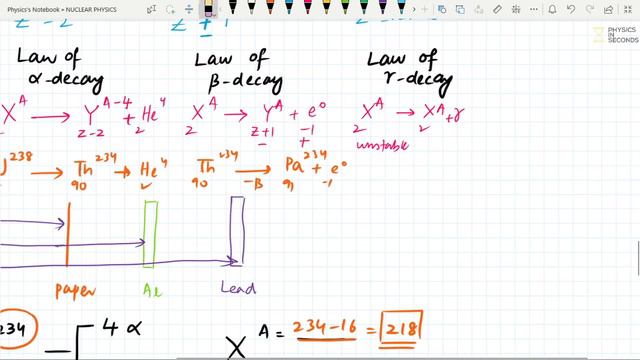 Physics's Notebook » NUCLEAR PHYSICS
PHYSICS
IN
SECONDS
Z-2
Z ± 1
Law of
α-decay
Law of
β-decay
Law of
γ-decay
X^A → Y^A-4 + He^4
Z-2 2
X^A → Y^A + e^0
Z Z±1 -1
+
X^A → X^A + γ
Z Z
unstable
U^238 → Th^234 + He^4
90 2
Th^234 → Pa^234 + e^0
90 -β 91 -1
paper
Al
Lead
234
4 α
X
A = 234-16 = 218